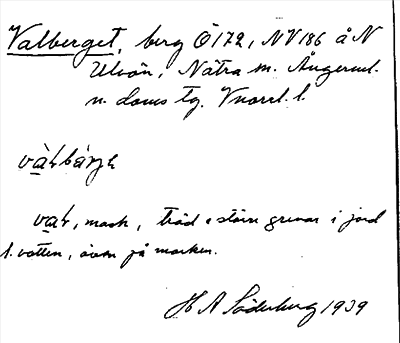 Valberget, berg Ö172, NV186 å N
Ulvön, Nätra sn. Ångerml.
n. doms tg. Vnorrl. l.
vàłbárje
vał, mask, träd o större grenar i jord
l. vatten, även på marken.
H A Söderberg 1939